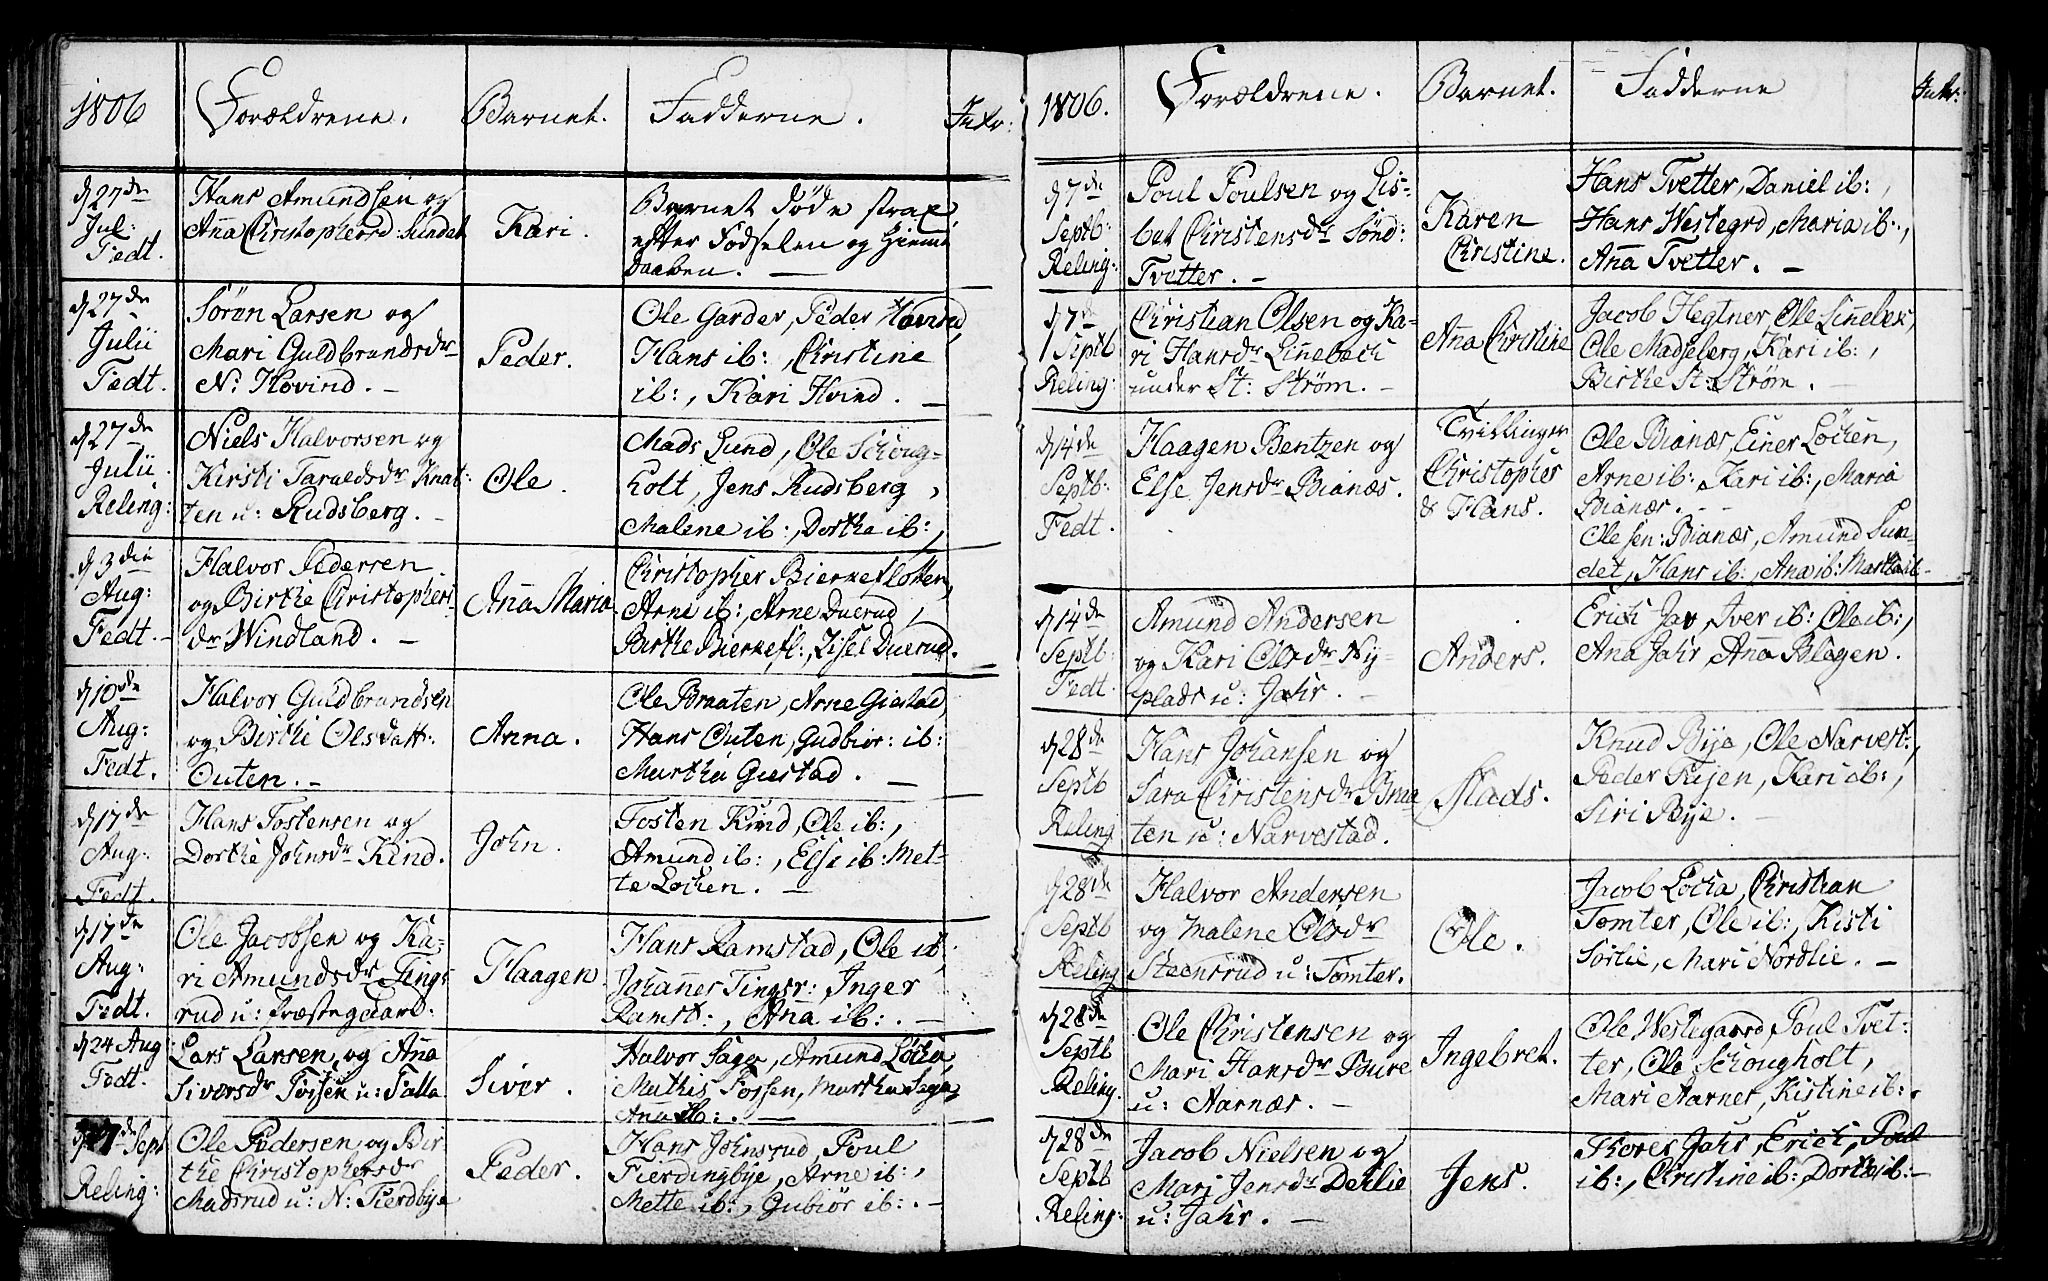 1806
Forældrene.
Barnet.
Fadderne.
Intr:
d 27de
Jul:
Fedt.
Hans Amundsen og
Aña Christophersd: Sundet
Kari.
Barnet døde strax
efter Fødselen og Hiemme
Daaben. —
d 27de
Julii
Fedt.
Søren Larsen og
Mari Guldbrandsdr
N: Hovind. —
Peder.
Ole Garder, Peder Hovind,
Hans ib:, Christine
ib:, Kari Hvind. —
d 27de
Julii
Reling:
Niels Halvorsen og
Kirsti Taraldsdr Knat:
ten u: Rudsberg. —
Ole.
Mads Lund, Ole Schoug-
holt, Jens Rudsberg,
Malene ib:, Dorthe ib:,
d 3die
Aug:
Fedt. —
Halvor Pedersen
og Birthe Christophers:
dr Windland. —
Aña Maria
Christopher Bierkefloten,
Arne ib:, Arne Duerud,
Birthe Bierkefl:, Lisel Duerud.
d 10de
Aug:
Fedt.
Halvor Guldbrandsen
og Birthe Olsdatt:
Outen. —
Anna.
Ole Braaten, Arne Giestad,
Hans Outen, Gudbior: ib:
Marthe Giestad. —
d 17de
Aug:
Fedt.
Hans Tostensen og
Dorthe Johnsdr Kind.
John.
Tosten Kind, Ole ib:,
Amund ib:, Else ib: Met-
te Løcken. —
d 17de
Aug:
Fedt.
Ole Jacobsen og Ka-
ri Amundsdr Tings:
rud u: Præstegaard:
Haagen.
Hans Ramstad, Ole ib:
Johañes Tingsr:, Inger
Ramst:, Aña ib:. —
d 24 Aug:
Fedt.
Lars Larsen og Aña
Siversdr u: Falla
Siver.
Halvor Sagge, Amund Løcka,
Mathis Fossen, Marthe Sagge,
Aña ib:. —
d 7de Sept
Reling:
Ole Pedersen og Bir
the Christophersdr
Madsrud u: N: Fierdbye
Peder.
Hans Johnsrud, Poul
Fierdingbye, Arne ib:,
Mette ib:, Gubiør ib:. —
1806.
Forældrene.
Barnet.
Fadderne
Intr:
d 7de
Septb:
Reling:
Poul Poulsen og Lis-
bet Christensdr Sønd:
Tvetter. —
Karen
Christine.
Hans Tvetter, Daniel ib:,
Hans Westegrd, Maria ib:,
Aña Tvetter. —
d 7de
Septb
Reling:
Christian Olsen og Ka-
ri Hansdr Liñebech
under St: Strøm. —
Aña Christine
Jacob Hegtner, Ole Liñebek,
Ole Madseberg, Kari ib:,
Birthe St: Strøm. —
d 14de
Septb:
Fedt.
Haagen Bentzen og
Else Jensdr Bianæs.
Tvillinger
Christopher
& Hans.
Ole Bianæs, Einer Løcken,
Arne ib: Kari ib:, Maria
Bianæs. —
Ole sen: Bianæs, Amund Sun
det, Hans ib:, Ana ib: Martha ib: —
d 14de
Septb:
Fedt.
Amund Andersen
og Kari Olsdr Ny-
plads u: Jahr. —
Anders.
Erich Jar, Iver ib: Ole ib:,
Ana Jahr, Aña Blegen.
d 28de
Septb
Reling
Hans Johansen og
Sara Christensdr Braa
ten u: Narvestad.
Mads.
Knud Bye, Ole Narvest:,
Peder Rijen, Kari ib:,
Siri Bye. —
d 28de
Septb
Reling
Halvor Andersen
og Malene Olsdr
Steensrud u: Tomter.
Ole.
Jacob Løcka, Christian
Tomter, Ole ib:, Kisti
Sørlie, Mari Nordlie. —
d 28de
Septb
Reling.
Ole Christensen og
Mari Hansdr Bure
u: Aarnæs. —
Ingebret.
Ole Westegaard, Poul Tvet-
ter, Ole Schougholt,
Mari Aarnes, Kistine ib:.
d 28de
Septb
Reling:
Jacob Nielsen og
Mari Jensdr Dehlie
u: Jahr. —
Jens.
Kores Jahr, Erich, Poul
ib:, Christine ib:, Dorthe ib: —